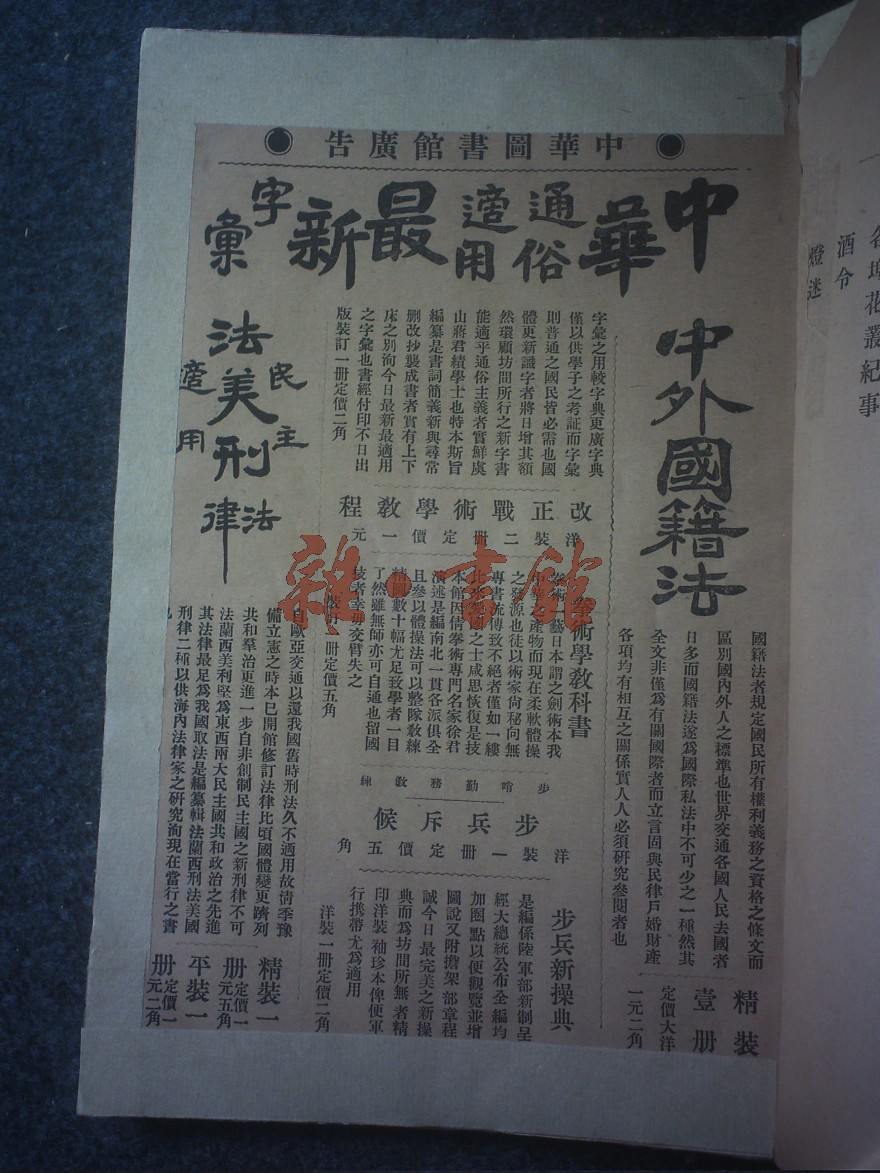 中華圖書館廣告
中華通俗適用最新字彙
字彙之用較字典更廣字典
僅以供學子之考証而字彙
則普通之國民皆必需也國
體更新識字者將日增其額
然環顧坊間所行之新字書
能適乎通俗主義者實鮮虞
山蔣君績學士也特本斯旨
編纂是書詞簡義新與尋常
刪改抄襲成書者實有上下
床之別洵今日最新最適用
之字彙也書經付印不日出
版裝訂一冊定價二角
中外國籍法
國籍法者規定國民所有權利義務之資格之條文而
區別國內外人之標準也世界交通各國人民去國者
日多而國籍法遂為國際私法中不可少之一種然其
全文非僅為有關國際者而立言固與民律戶婚財產
各項均有相互之關係實人人必須研究參閱者也
精裝
壹冊
定價大洋
一元二角
改正戰術學教程
洋裝二冊定價一元
拳術學教科書
拳術一藝日本謂之劍術本我
中華之產物而現在柔軟體操
之發源也徒以術家倘秘向無
專書流傳致不絕者僅如一縷
比來愛國之士咸思恢復是技
本館因倩拳術專門名家徐君
演述是編南北一貫各派俱全
且參以體操法可以整隊教練
精圖數十幅尤足致學者一目
了然雖無師亦可自通也留國
技者幸毋交臂失之
裝訂一冊定價五角
步哨勤務教練
步兵斥候
洋裝一冊定價五角
步兵新操典
是編係陸軍部新制呈
經大總統公布全編均
加圈點以便觀覽並增
圖說又附擔架部章程
誠今日最完美之新操
典而為坊間所無者精
印洋裝袖珍本俾便軍
行攜帶尤為適用
洋裝一冊定價二角
民主適用
法美刑律
法
自歐亞交通以還我國舊時刑法久不適用故清季豫
備立憲之時本已開館修訂法律比頃國體變更躋列
共和羣治更進一步自非創制民主國之新刑律不可
法蘭西美利堅為東西兩大民主國共和政治之先進
其法律最足為我國取法是編纂輯法蘭西刑法美國
刑律二種以供海內法律家之研究洵現在當行之書
也
精裝一冊定價一元五角
平裝一冊定價一元二角
花叢紀事
酒令
燈迷
雜書館